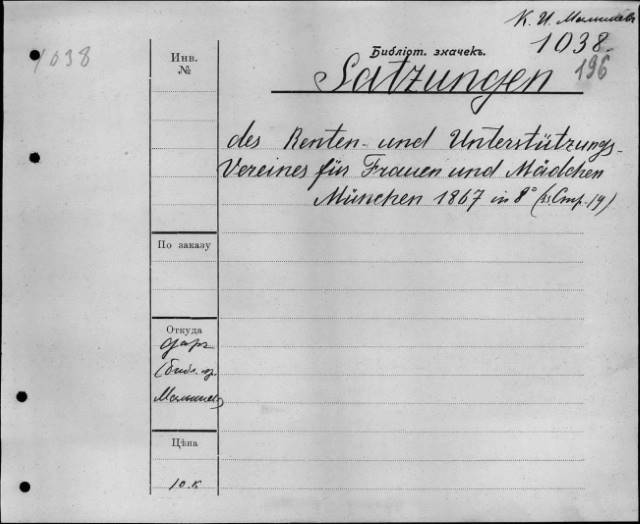 К. И. Малышев
1038
1038.
Библіот. значекъ.
196
Инв.
№
Satzungen
des Renten- und Unterstützungs-
Vereines für Frauen und Mädchen
München 1867 in 8° (Стр. 19)
По заказу
Откуда
даръ
(библ. пр.
Малышев
Цѣна
10 к